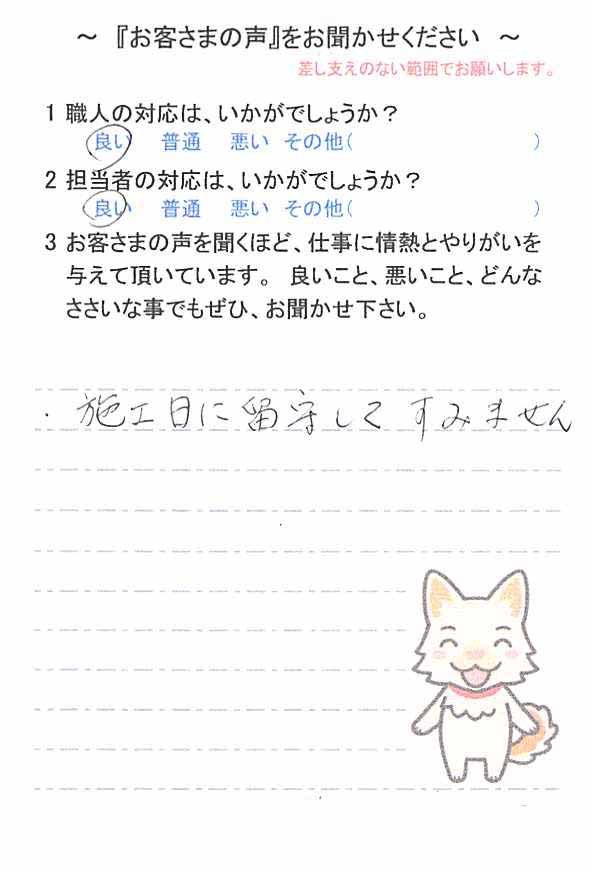 ～ 『お客さまの声』をお聞かせください ～
差し支えのない範囲でお願いします。
1 職人の対応は、いかがでしょうか？
良い 普通 悪い その他( )
2 担当者の対応は、いかがでしょうか？
良い 普通 悪い その他( )
3 お客さまの声を聞くほど、仕事に情熱とやりがいを
与えて頂いています。 良いこと、悪いこと、どんな
ささいな事でもぜひ、お聞かせ下さい。
・施工日に留守してすみません